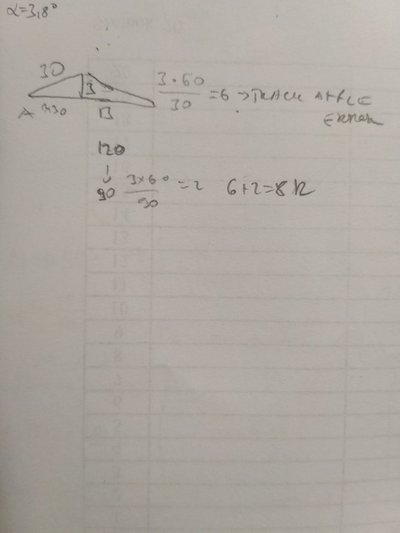 α=3,8°
30
3
3·60/30 =6 → TRACK ANGLE
ERROR
A
B
120
↓
90
3×60/90 =2
6+2=8 R